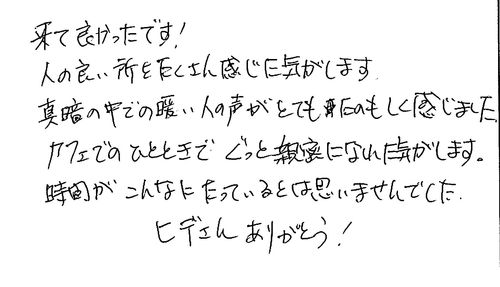 来て良かったです!
人の良い所をたくさん感じた気がします
真暗の中での暖い人の声がとてもたのもしく感じました
カフェでのひとときでぐっと親密になれた気がします。
時間がこんなにたっているとは思いませんでした.
ヒデさんありがとう!